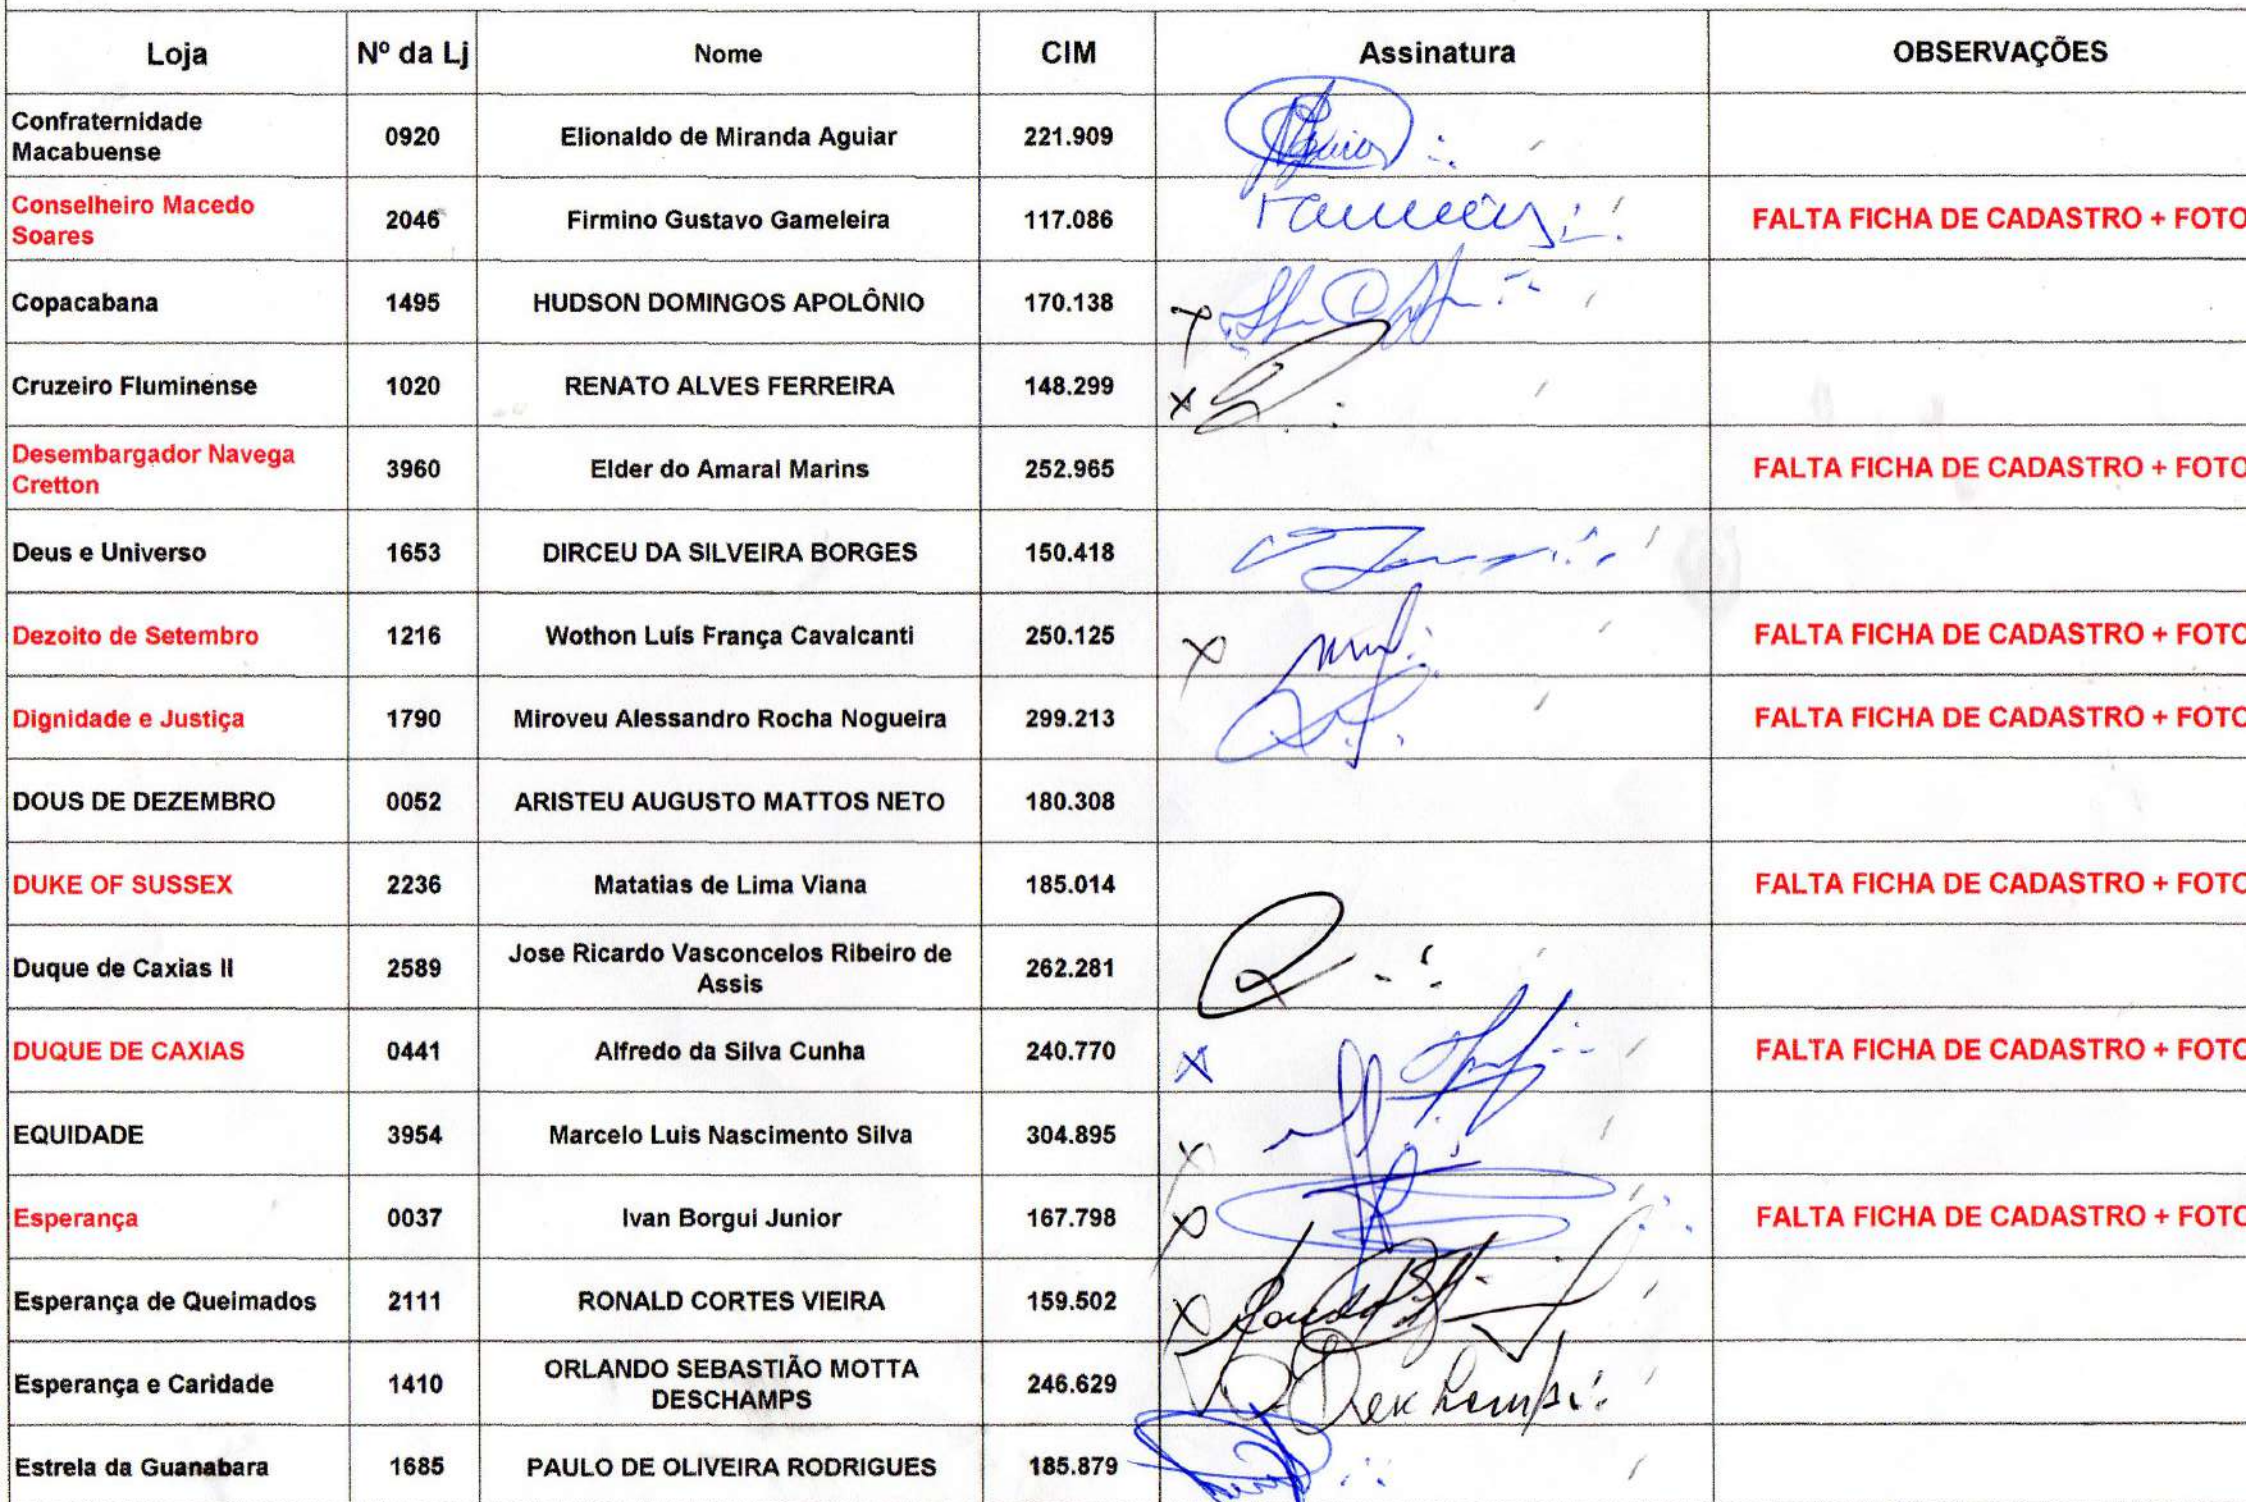 Loja Nº da Lj Nome CIM Assinatura OBSERVAÇÕES
Confraternidade
Macabuense 0920 Elionaldo de Miranda Aguiar 221.909
Conselheiro Macedo
Soares 2046 Firmino Gustavo Gameleira 117.086 FALTA FICHA DE CADASTRO + FOTO
Copacabana 1495 HUDSON DOMINGOS APOLÔNIO 170.138
Cruzeiro Fluminense 1020 RENATO ALVES FERREIRA 148.299
Desembargador Navega
Cretton 3960 Elder do Amaral Marins 252.965 FALTA FICHA DE CADASTRO + FOTO
Deus e Universo 1653 DIRCEU DA SILVEIRA BORGES 150.418
Dezoito de Setembro 1216 Wothon Luís França Cavalcanti 250.125 FALTA FICHA DE CADASTRO + FOTO
Dignidade e Justiça 1790 Miroveu Alessandro Rocha Nogueira 299.213 FALTA FICHA DE CADASTRO + FOTO
DOUS DE DEZEMBRO 0052 ARISTEU AUGUSTO MATTOS NETO 180.308
DUKE OF SUSSEX 2236 Matatias de Lima Viana 185.014 FALTA FICHA DE CADASTRO + FOTO
Duque de Caxias II 2589 Jose Ricardo Vasconcelos Ribeiro de
Assis 262.281
DUQUE DE CAXIAS 0441 Alfredo da Silva Cunha 240.770 FALTA FICHA DE CADASTRO + FOTO
EQUIDADE 3954 Marcelo Luis Nascimento Silva 304.895
Esperança 0037 Ivan Borgui Junior 167.798 FALTA FICHA DE CADASTRO + FOTO
Esperança de Queimados 2111 RONALD CORTES VIEIRA 159.502
Esperança e Caridade 1410 ORLANDO SEBASTIÃO MOTTA
DESCHAMPS 246.629
Estrela da Guanabara 1685 PAULO DE OLIVEIRA RODRIGUES 185.879